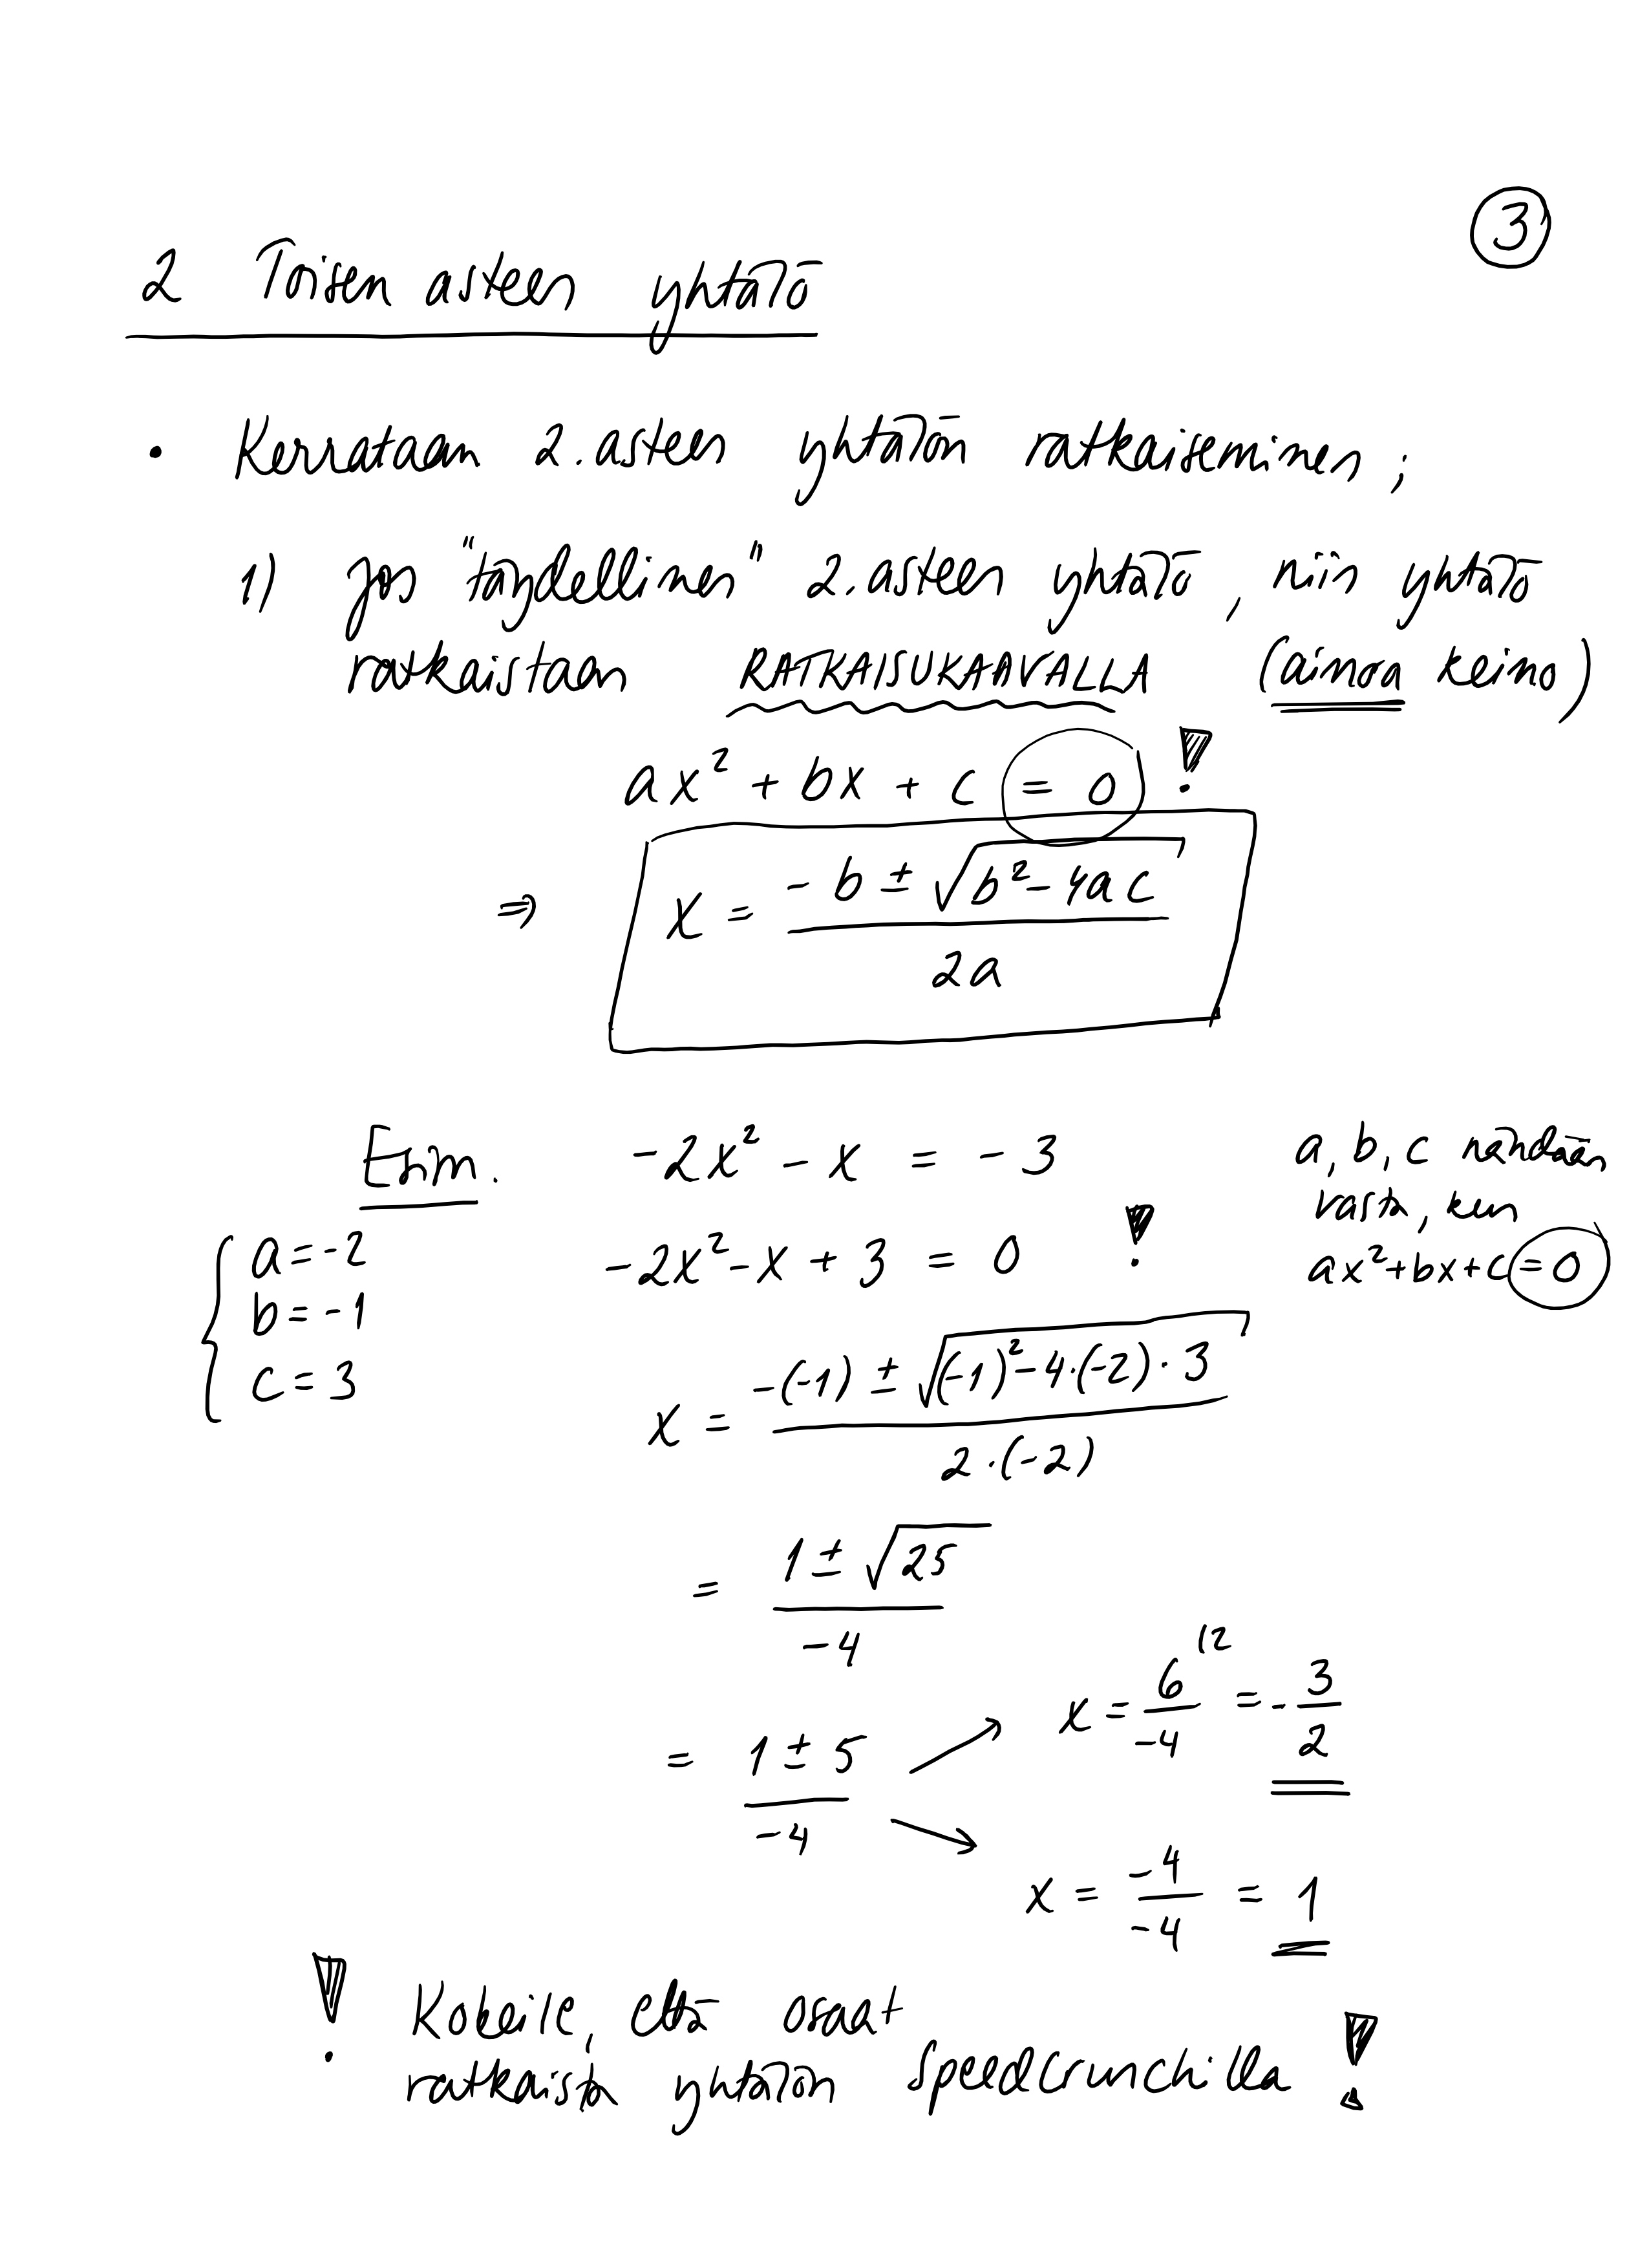 3
2 Toisen asteen yhtälö
• Kerrataan 2. asteen yhtälön ratkaiseminen ;
1) Jos "täydellinen" 2. asteen yhtälö, niin yhtälö
ratkaistaan RATKAISUKAAVALLA (ainoa keino)
ax² + bx + c = 0 !
⇒ x = (-b ± √(b² - 4ac)) / 2a
Esim. -2x² - x = -3
a, b, c nähdään
vasta, kun
ax² + bx + c = 0
-2x² - x + 3 = 0 !
a = -2
b = -1
c = 3
x = (-(-1) ± √((-1)² - 4·(-2)·3)) / 2·(-2)
= (1 ± √25) / -4
= (1 ± 5) / -4
x = 6/-4 (2 = -3/2
x = -4/-4 = 1
! Kokeile, että osaat
ratkaista yhtälön speedcrunchilla !